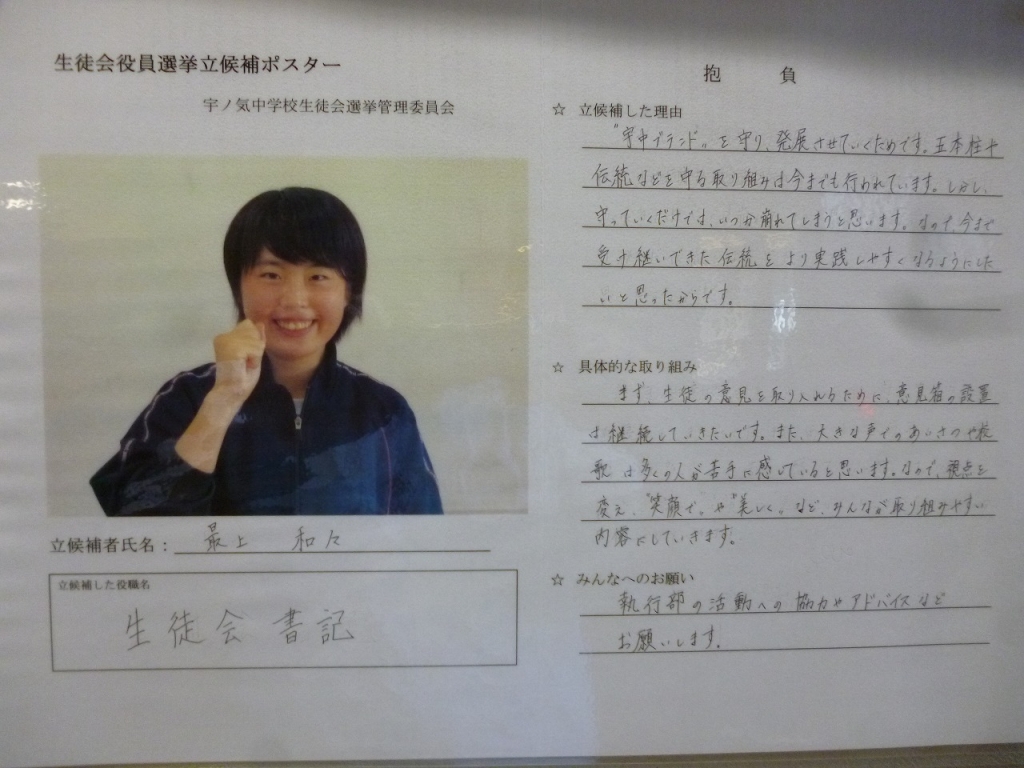 生徒会役員選挙立候補ポスター
宇ノ気中学校生徒会選挙管理委員会
立候補者氏名：最上 和々
立候補した役職名
生徒会 書記
抱 負
☆ 立候補した理由
"宇中ブランド"を守り、発展させていくためです。五本柱や
伝統などを守る取り組みは今までも行われています。しかし、
守っていくだけでは、いつか崩れてしまうと思います。なので、今まで
受け継いできた伝統をより実践しやすくなるようにした
いと思ったからです。
☆ 具体的な取り組み
まず、生徒の意見を取り入れるために、意見箱の設置
は継続していきたいです。また、大きな声でのあいさつや校
歌は多くの人が苦手に感じていると思います。なので、視点を
変え、"笑顔で"や"美しく"など、みんなが取り組みやすい
内容にしていきます。
☆ みんなへのお願い
執行部の活動への協力やアドバイスなど
お願いします。